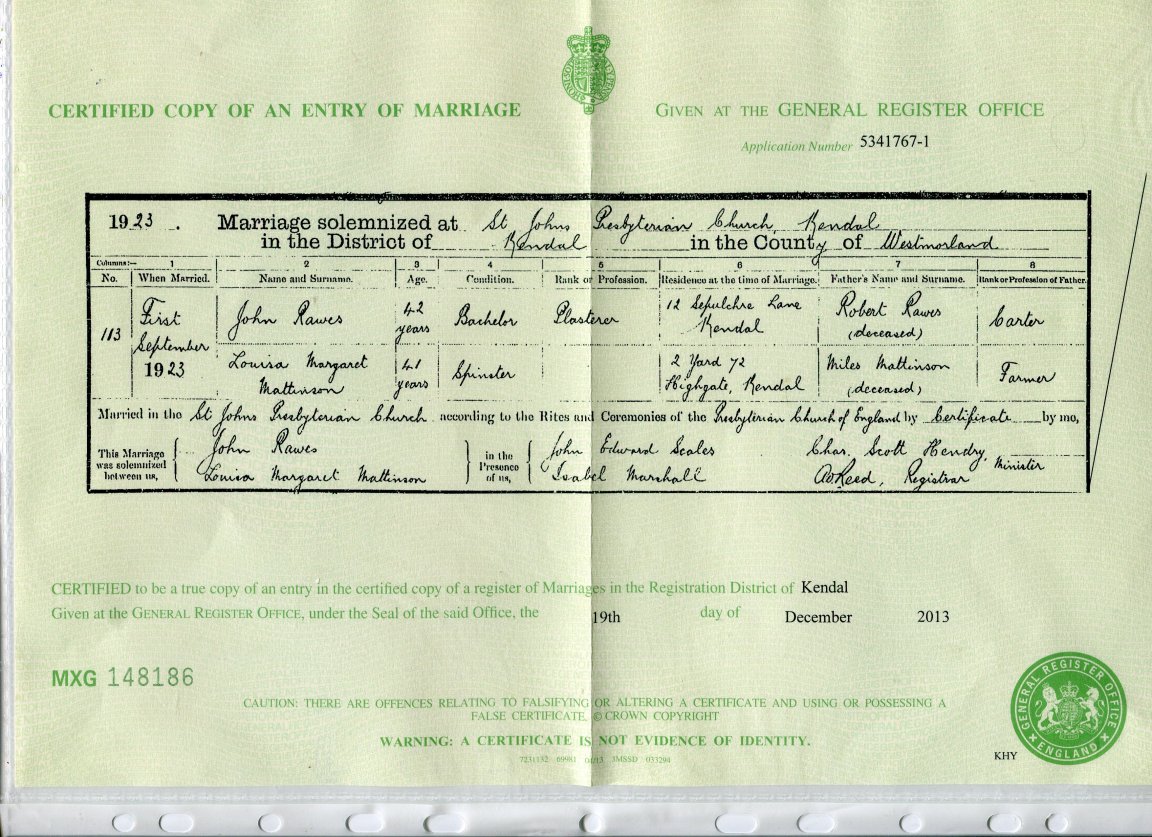 CERTIFIED COPY OF AN ENTRY OF MARRIAGE
GIVEN AT THE GENERAL REGISTER OFFICE
Application Number 5341767-1
1923. Marriage solemnized at St Johns Presbyterian Church, Kendal
in the District of Kendal in the County of Westmorland
Columns:— 1 2 3 4 5 6 7 8
No. When Married. Name and Surname. Age. Condition. Rank or Profession. Residence at the time of Marriage. Father's Name and Surname. Rank or Profession of Father.
113 First September 1923 John Rawes 42 years Bachelor Plasterer 12 Sepulchre Lane Kendal Robert Rawes (deceased) Carter
Louisa Margaret Mattinson 41 years Spinster 2 Yard 72 Highgate, Kendal Miles Mattinson (deceased) Farmer
Married in the St Johns Presbyterian Church according to the Rites and Ceremonies of the Presbyterian Church of England by Certificate by me,
This Marriage was solemnized between us, John Rawes
Louisa Margaret Mattinson
in the Presence of us, John Edward Scales
Isabel Marshall
Chas. Scott Hendry, Minister
Reed, Registrar
CERTIFIED to be a true copy of an entry in the certified copy of a register of Marriages in the Registration District of Kendal
Given at the GENERAL REGISTER OFFICE, under the Seal of the said Office, the 19th day of December 2013
MXG 148186
CAUTION: THERE ARE OFFENCES RELATING TO FALSIFYING OR ALTERING A CERTIFICATE AND USING OR POSSESSING A
FALSE CERTIFICATE. © CROWN COPYRIGHT
WARNING: A CERTIFICATE IS NOT EVIDENCE OF IDENTITY.
7231132 69981 04/13 3MSSD 033294
KHY
GENERAL REGISTER OFFICE
ENGLAND